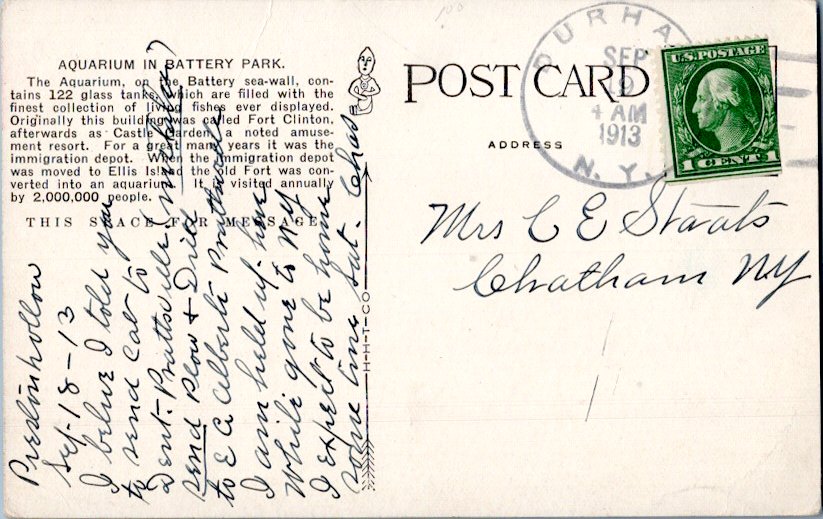 AQUARIUM IN BATTERY PARK.
The Aquarium, on the Battery sea-wall, con-
tains 122 glass tanks, which are filled with the
finest collection of living fishes ever displayed.
Originally this building was called Fort Clinton,
afterwards as Castle Garden, a noted amuse-
ment resort. For a great many years it was the
immigration depot. When the immigration depot
was moved to Ellis Island the old Fort was con-
verted into an aquarium. It is visited annually
by 2,000,000 people.
THIS SPACE FOR MESSAGE
POST CARD
ADDRESS
DURHAM
SEP
19
4 AM
1913
N. Y.
U.S. POSTAGE
1 CENT 1
Mrs C E Staats
Chatham NY
H-H-T-CO
Prestonhollow
Sep. 18-13
I beleve I told you
to send Cat to
Dent. Prattsville.
Send Plow & Drill
to E C Alberti Prattsville
I am held up here
While gone to NY
I expect to be home
some time Sat. Chas